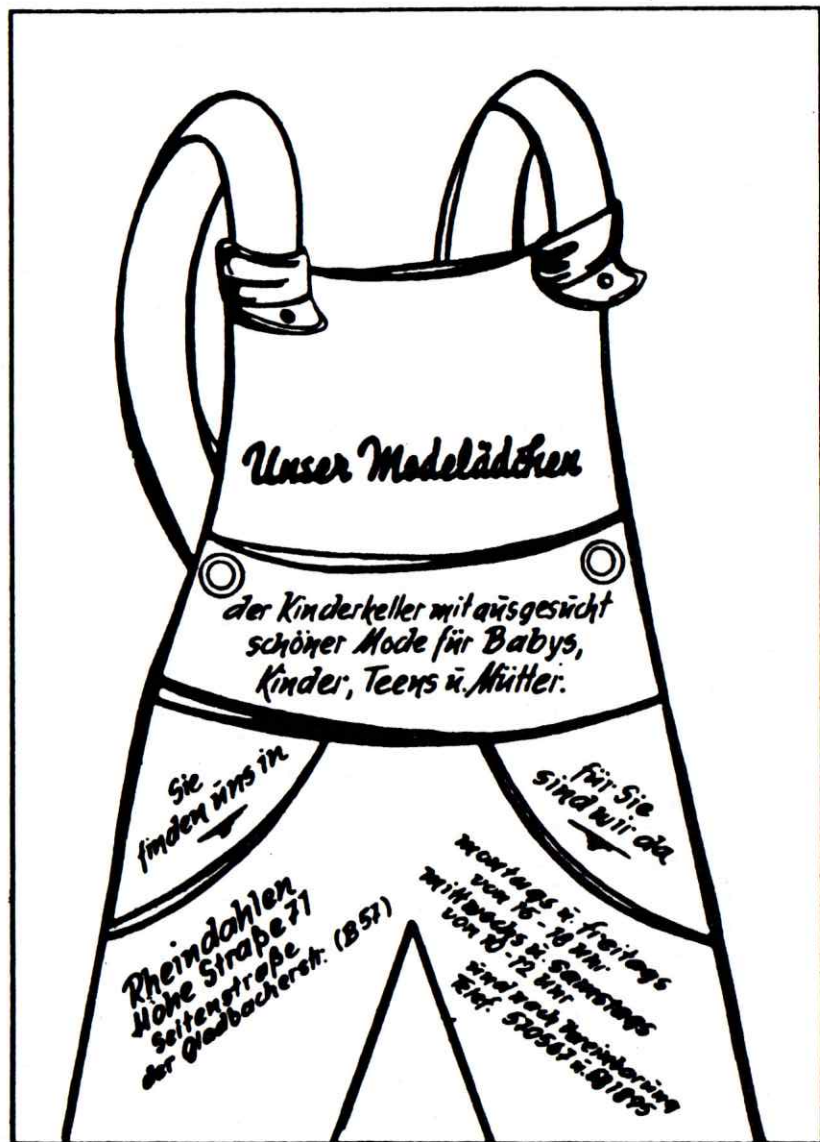 Unser Modelädchen
der Kinderkeller mit ausgesucht
schöner Mode für Babys,
Kinder, Teens u. Mütter.
Sie
finden uns in
Rheindahlen
Hohe Straße 71
Seitenstraße
der Gladbacherstr. (B57)
für Sie
sind wir da
montags u. freitags
von 16-18 Uhr
mittwochs u. Samstags
von 10-12 Uhr
und nach Vereinbarung
Telef. 570567 u.